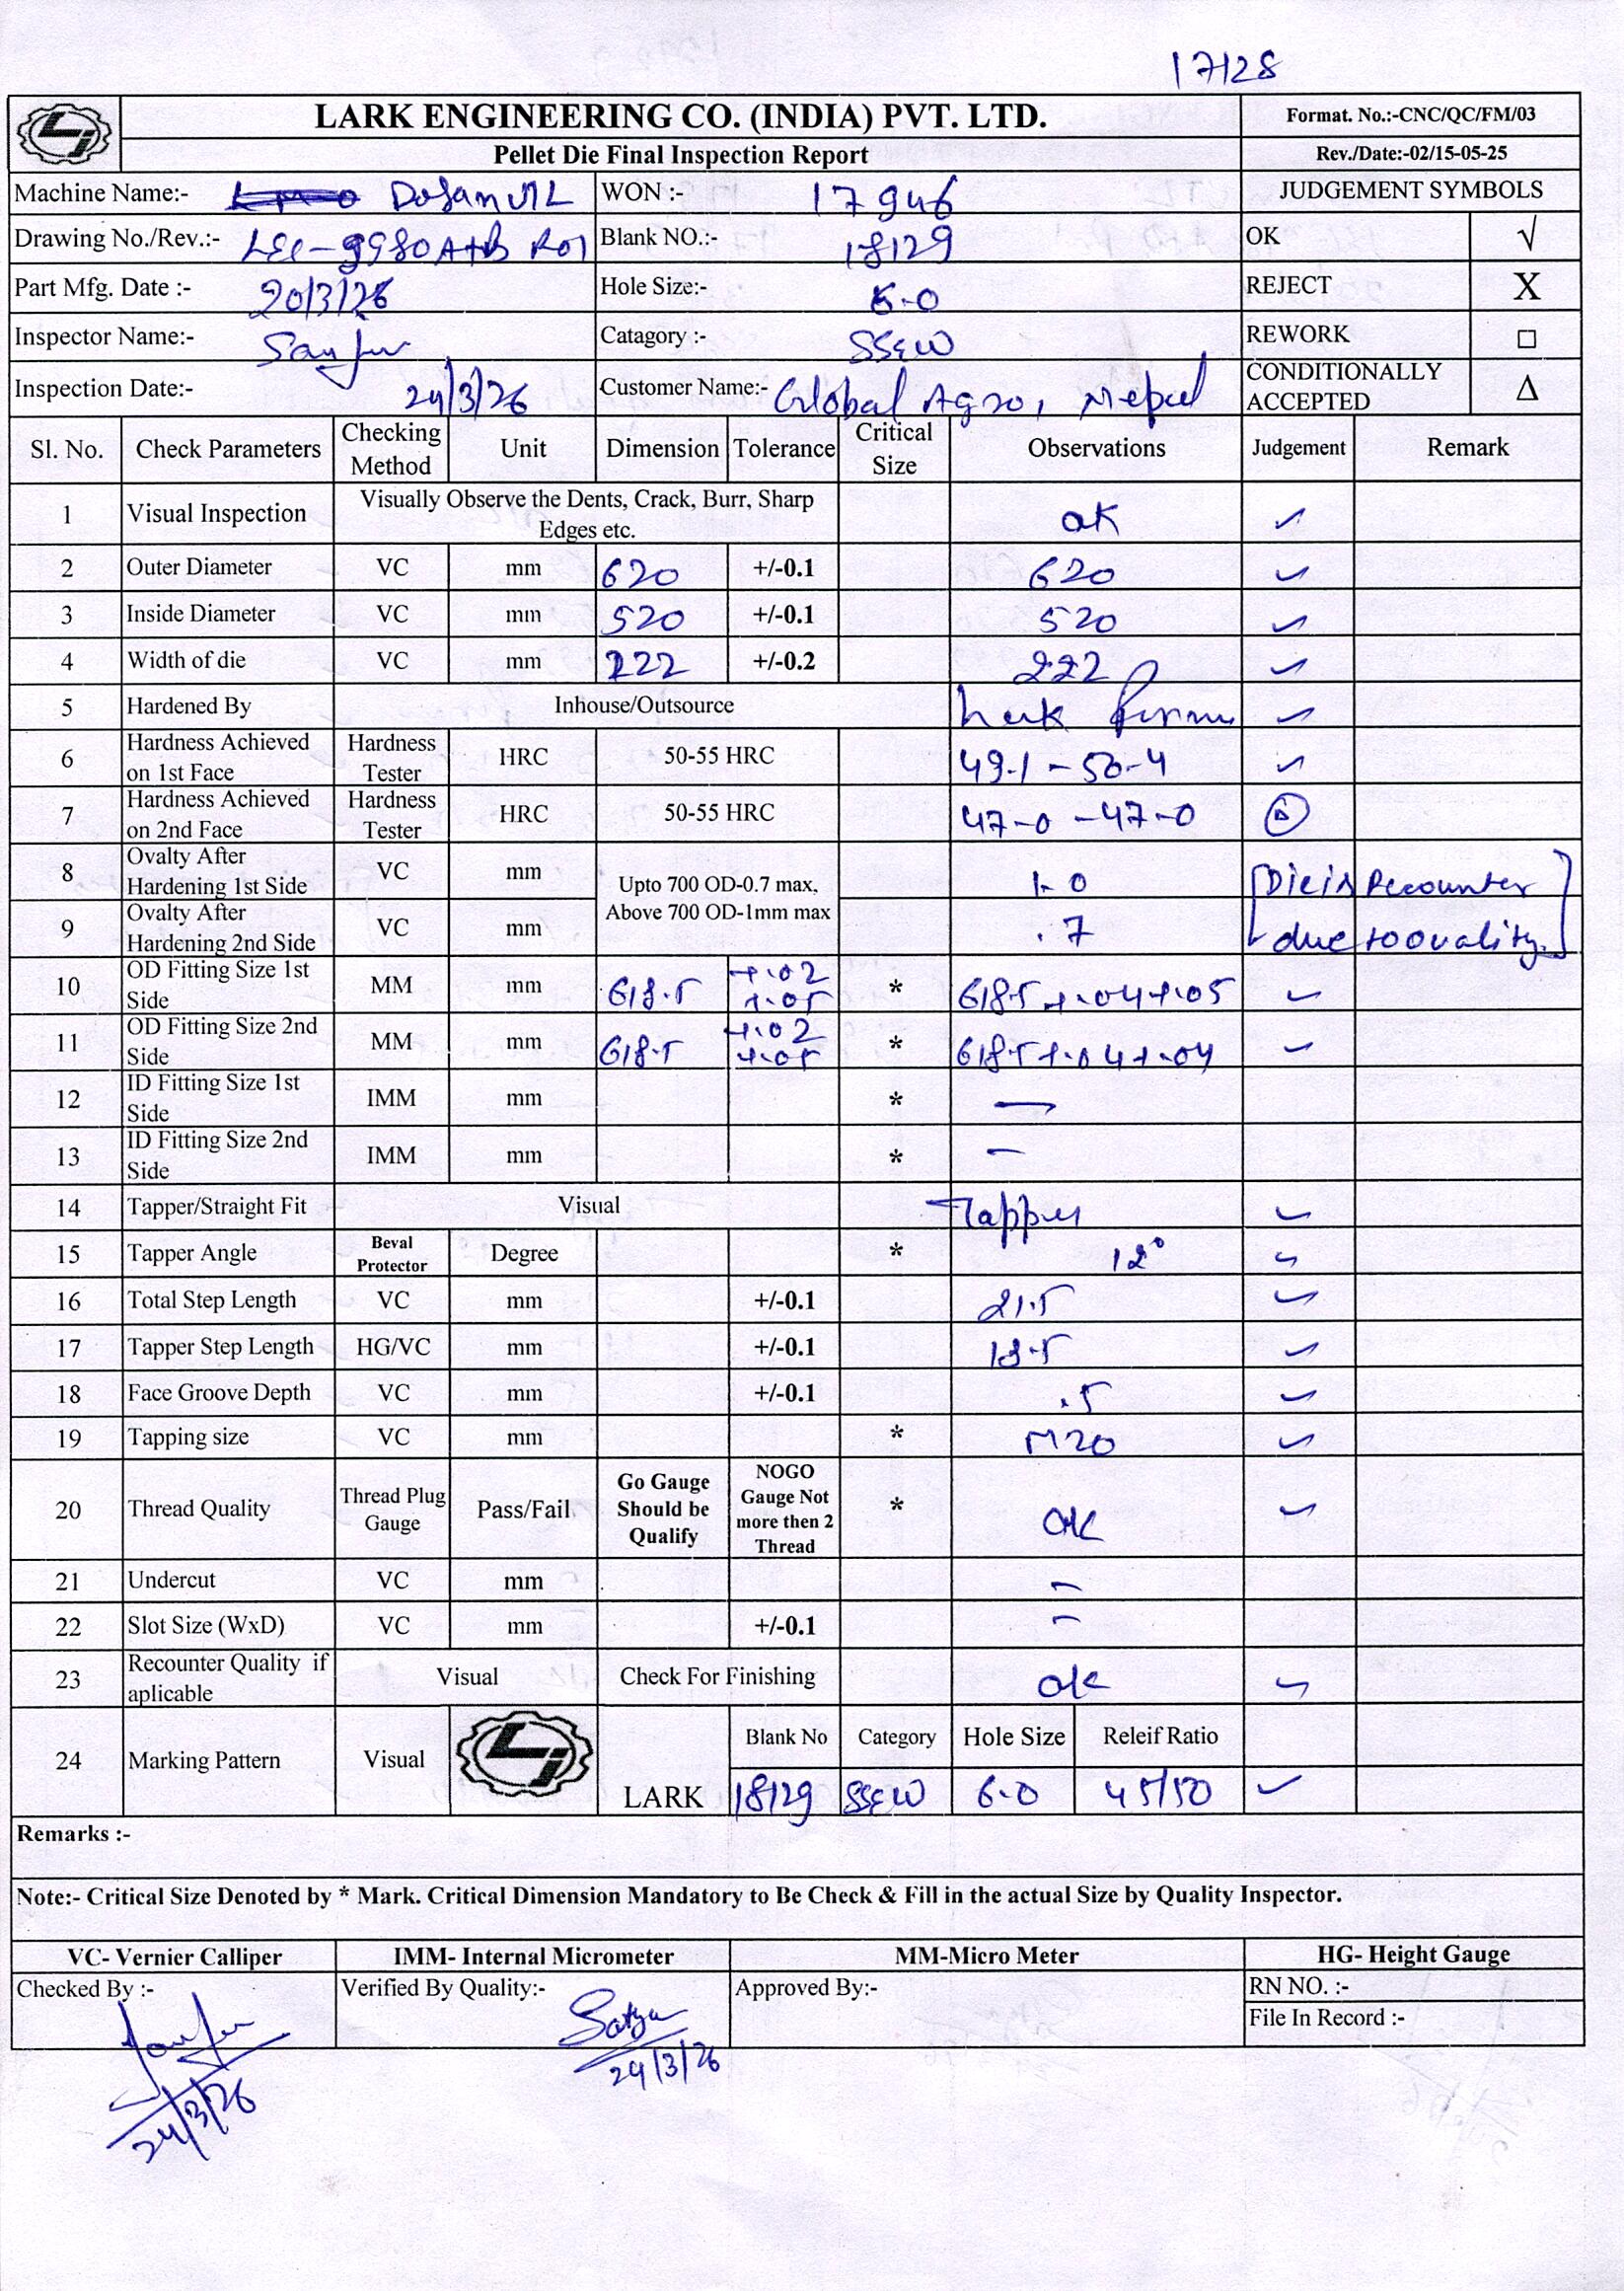 17128
LARK ENGINEERING CO. (INDIA) PVT. LTD.
Format. No.:-CNC/QC/FM/03
Pellet Die Final Inspection Report
Rev./Date:-02/15-05-25
Machine Name:-
WON :- 17946
JUDGEMENT SYMBOLS
Drawing No./Rev.:-
Blank NO.:- 18129
OK √
Part Mfg. Date :- 20/3/26
Hole Size:- 6.0
REJECT X
Inspector Name:-
Catagory :-
REWORK □
Inspection Date:- 24/3/26
Customer Name:- Global Agro, Nepal
CONDITIONALLY ACCEPTED Δ
Sl. No. Check Parameters Checking Method Unit Dimension Tolerance Critical Size Observations Judgement Remark
1 Visual Inspection Visually Observe the Dents, Crack, Burr, Sharp Edges etc. OK ✓
2 Outer Diameter VC mm 620 +/-0.1 620 ✓
3 Inside Diameter VC mm 520 +/-0.1 520 ✓
4 Width of die VC mm 222 +/-0.2 222 ✓
5 Hardened By Inhouse/Outsource ✓
6 Hardness Achieved on 1st Face Hardness Tester HRC 50-55 HRC 49.1 - 50.4 ✓
7 Hardness Achieved on 2nd Face Hardness Tester HRC 50-55 HRC 47-0 - 47-0 Δ
8 Ovalty After Hardening 1st Side VC mm Upto 700 OD-0.7 max, Above 700 OD-1mm max 1.0 [Die is Recounter
9 Ovalty After Hardening 2nd Side VC mm .7 due to ovality.]
10 OD Fitting Size 1st Side MM mm 618.5 +.02 +.05 * 618.5 +.04 +.05 ✓
11 OD Fitting Size 2nd Side MM mm 618.5 +.02 +.05 * 618.5 +.04 +.04 ✓
12 ID Fitting Size 1st Side IMM mm * —
13 ID Fitting Size 2nd Side IMM mm * —
14 Tapper/Straight Fit Visual Tapper ✓
15 Tapper Angle Beval Protector Degree * 12° ✓
16 Total Step Length VC mm +/-0.1 21.5 ✓
17 Tapper Step Length HG/VC mm +/-0.1 18.5 ✓
18 Face Groove Depth VC mm +/-0.1 .5 ✓
19 Tapping size VC mm * M20 ✓
20 Thread Quality Thread Plug Gauge Pass/Fail Go Gauge Should be Qualify NOGO Gauge Not more then 2 Thread * OK ✓
21 Undercut VC mm —
22 Slot Size (WxD) VC mm +/-0.1 —
23 Recounter Quality if aplicable Visual Check For Finishing OK ✓
24 Marking Pattern Visual LARK Blank No Category Hole Size Releif Ratio
18129 6.0 45/50 ✓
Remarks :-
Note:- Critical Size Denoted by * Mark. Critical Dimension Mandatory to Be Check & Fill in the actual Size by Quality Inspector.
VC- Vernier Calliper IMM- Internal Micrometer MM-Micro Meter HG- Height Gauge
Checked By :- Verified By Quality:- Satya Approved By:- RN NO. :-
File In Record :-
24/3/26 24/3/26